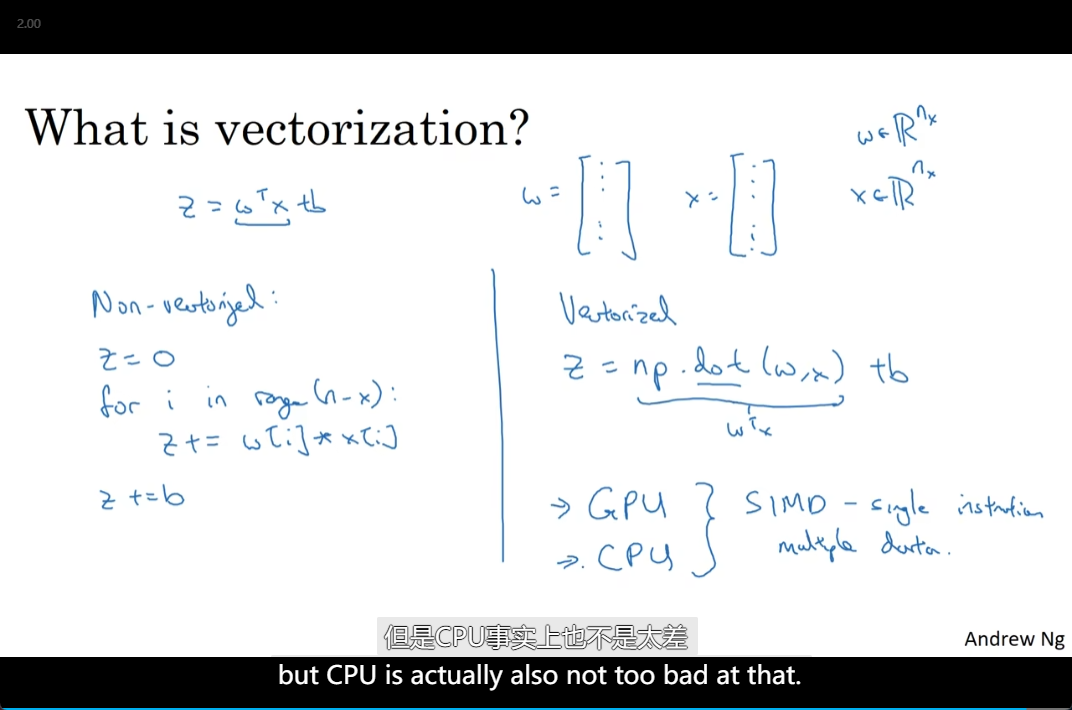 2.00
What is vectorization?
z = wᵀx + b
w = [⋮] x = [⋮]
w ∈ ℝⁿˣ
x ∈ ℝⁿˣ
Non-vectorized:
z = 0
for i in range(n-x):
z += w[i] * x[i]
z += b
Vectorized
z = np.dot(w,x) + b
wᵀx
→ GPU } SIMD - single instruction
→ CPU multiple data.
但是CPU事实上也不是太差
Andrew Ng
but CPU is actually also not too bad at that.